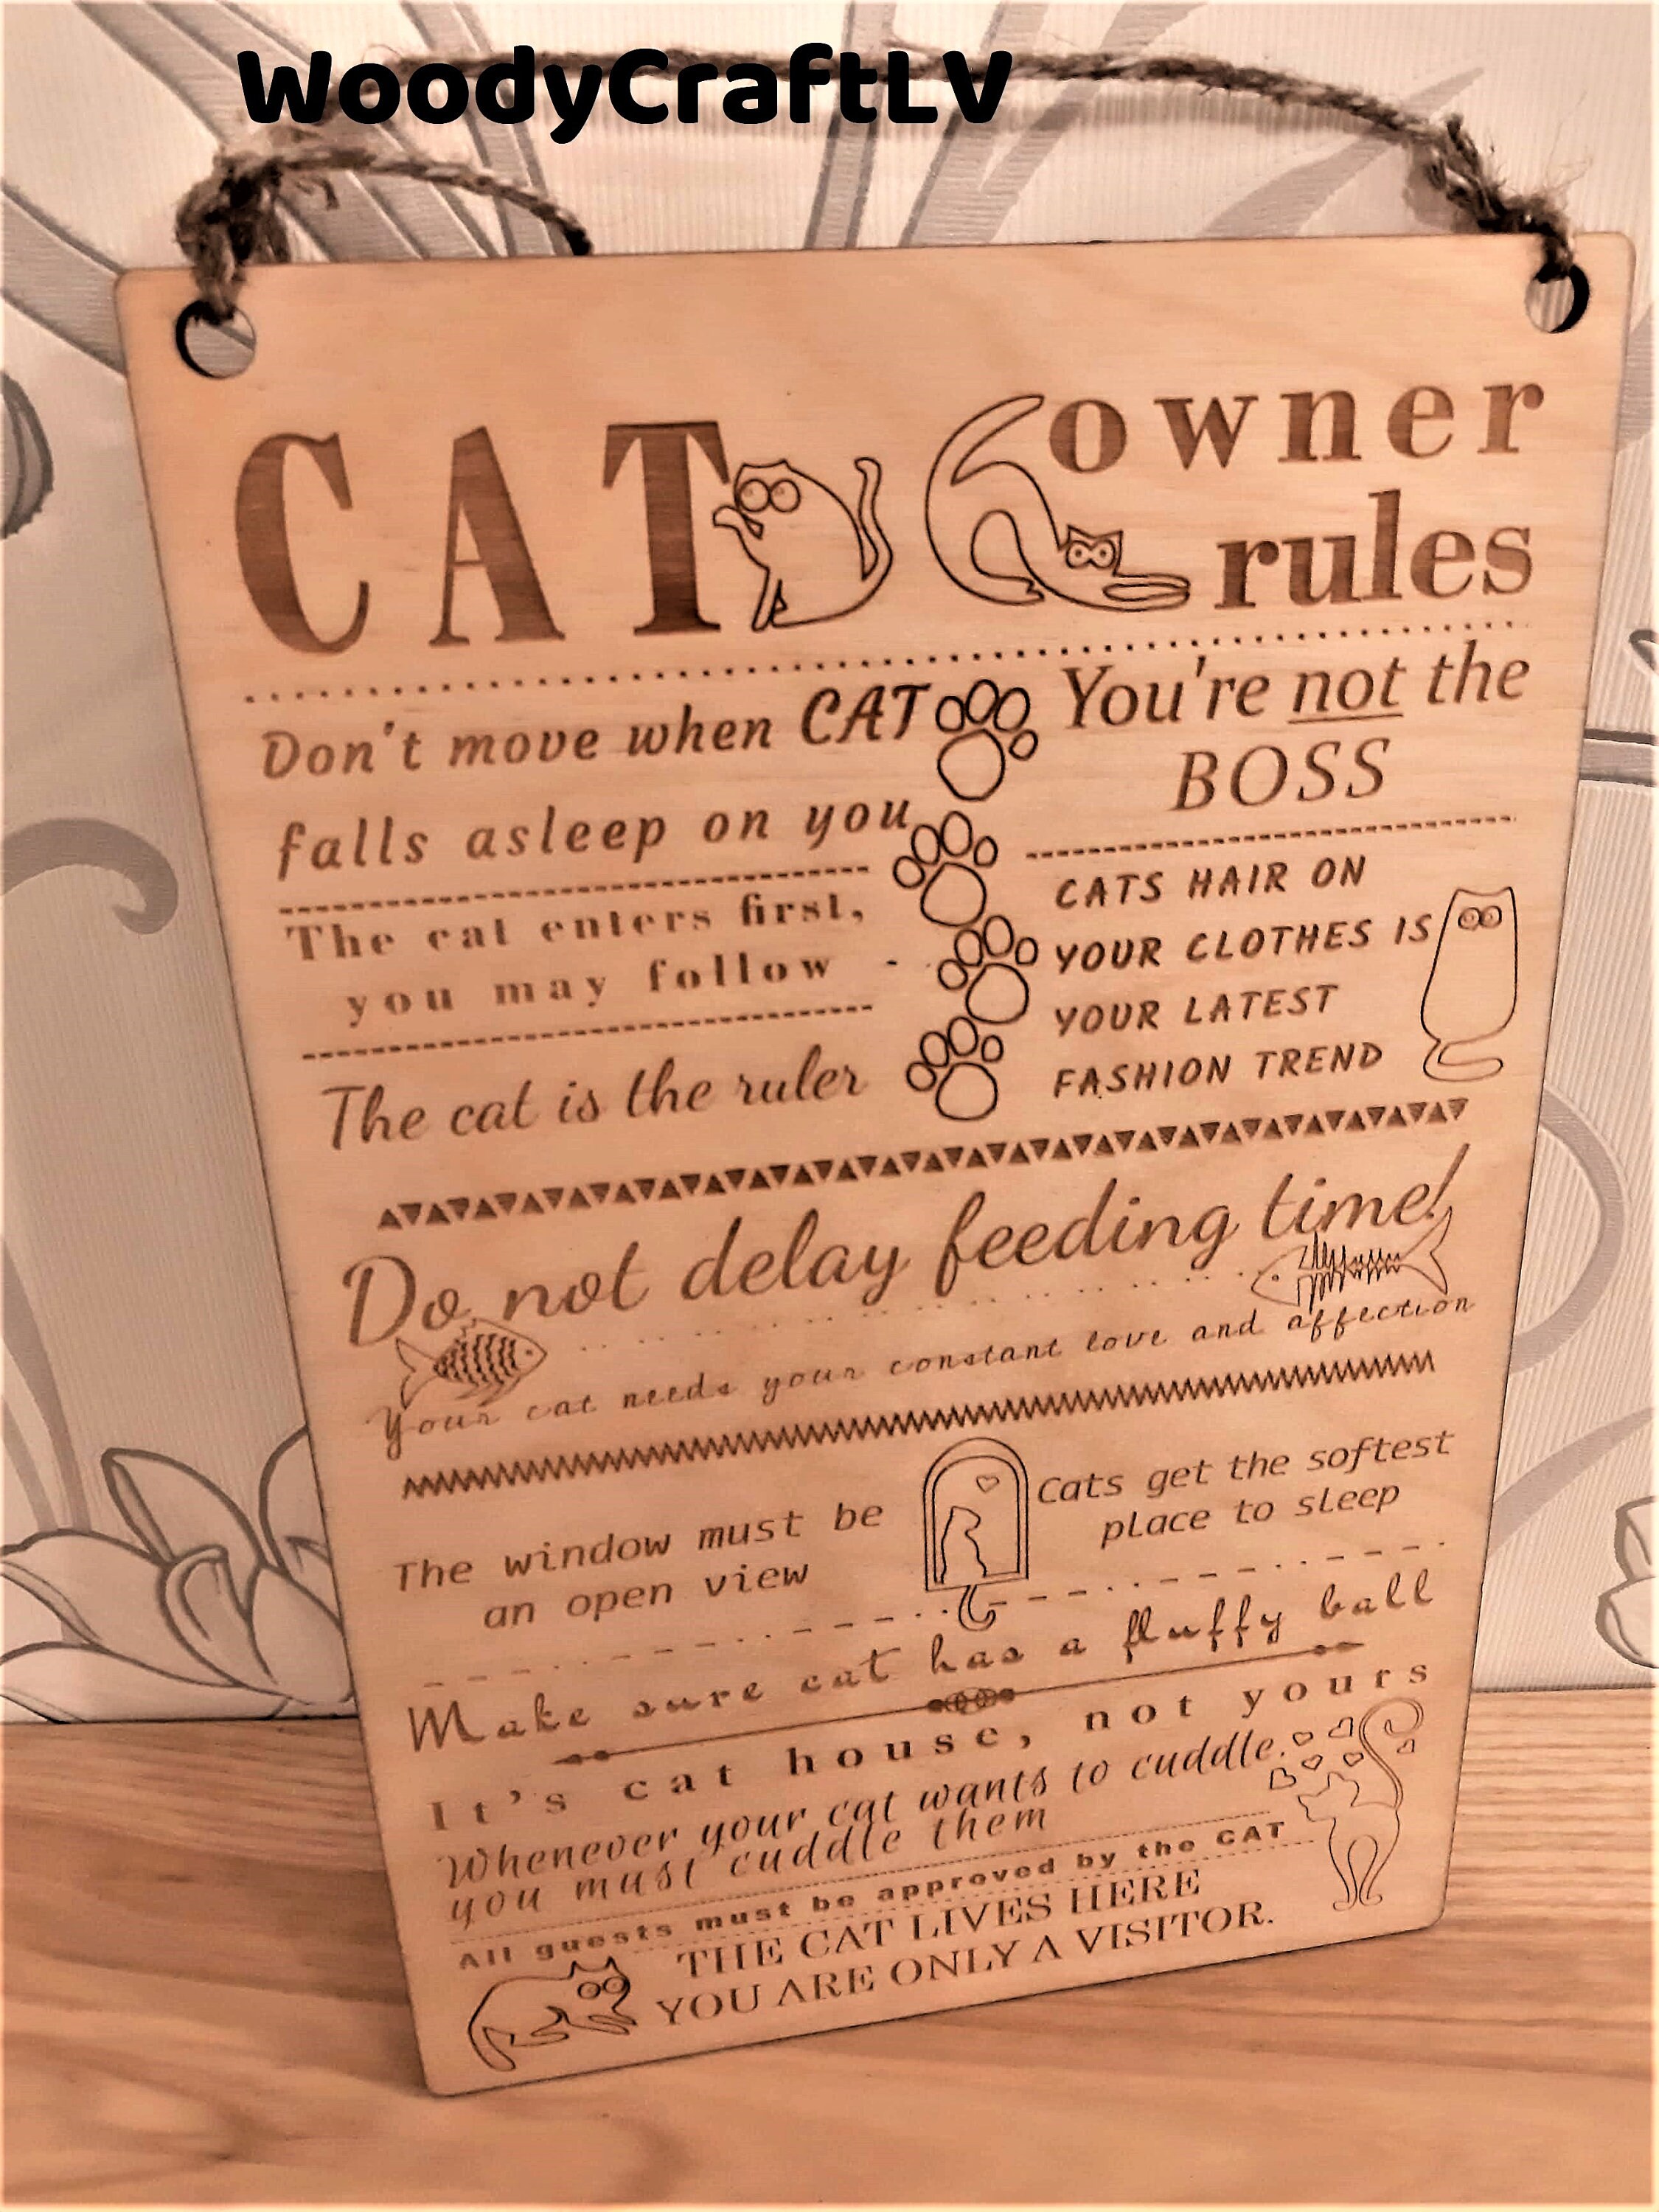 WoodyCraftLV
CAT
owner
rules
Don't move when CAT
falls asleep on you
The cat enters first,
you may follow
The cat is the ruler
You're not the
BOSS
CATS HAIR ON
YOUR CLOTHES IS
YOUR LATEST
FASHION TREND
Do not delay feeding time!
Your cat needs your constant love and affection
The window must be
an open view
Cats get the softest
place to sleep
Make sure cat has a fluffy ball
It's cat house, not yours
Whenever your cat wants to cuddle.
you must cuddle them
All guests must be approved by the CAT
THE CAT LIVES HERE
YOU ARE ONLY A VISITOR.